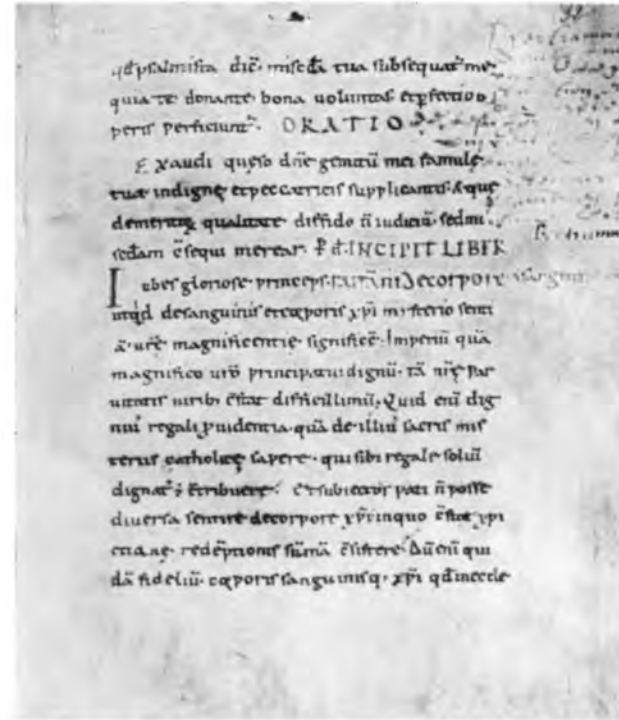 qđ psalmista diċ· misċđa tua subsequat᷑ me·
quia te donante bona uoluntas et ꝑfectio o
peris perficiunt᷑· ORATIO
Exaudi quęso dn̄e gemitū mei famulę
tuę indignę et peccatricis supplicantis· & quę
de meritoꝝ qualitate diffido n̄ iudiciū sed mi
sċđam c̄sequi merear· ꝑ d· INCIPIT LIBER
Iubes gloriose princeps· RATRĀNI De corpore
ut qid de sanguinis et corporis xp̄i mysterio senti
ā· ur̄ę magnificentię significē· Imperiū quā
magnifico ur̄o principatui dignū· tā nr̄ę par
uitatis uiribꝰ c̄stat difficillimū· Quid enī dig
niꝰ regali ꝓuidentia· quā de illiꝰ sacris mis
teriis catholicę sapere· qui sibi regale soliū
dignatꝰ ÷ c̄tribuere· Et subiectos pati n̄ posse
diuersa sentire de corpore xp̄i in quo c̄stat xp̄i
redēptionis sūmā c̄sistere· Dū enī qui
dā fideliū· corporis sanguinisq· xp̄i qđ in eccle